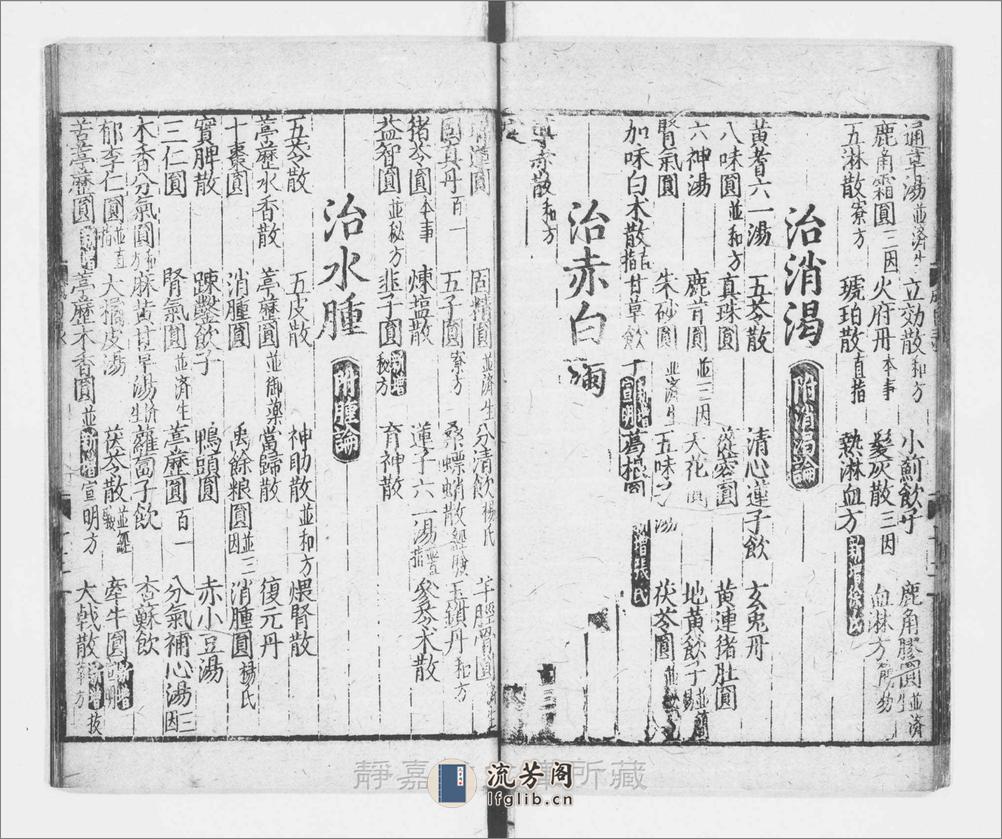 通草湯並済生 立効散和方 小薊飲子 鹿角膠圓並済生
鹿角霜圓三因 火府丹本事 髮灰散三因 血淋方簡易
五淋散寮方 琥珀散直指 熱淋血方新增
治消渇附消渇論
黃耆六一湯 五苓散 清心蓮子飲 玄兎丹
八味圓並和方 真珠圓 蓯蓉圓 黃連猪肚圓
六神湯 鹿茸圓並三因 天花 地黃飲子並簡易
腎氣圓 朱砂圓並済生 五味子湯 茯苓圓
加味白朮散直指 甘草飲子新增宣明 葛根圓新增張氏
治赤白濁
導赤散和方
固真丹百一 五子圓寮方 桑螵蛸散 玉鎖丹和方
固精圓並済生 分清飲楊氏 羊脛骨圓
猪苓圓本事 煉塩散 蓮子六一湯 蔘朮散
益智圓並秘方 韭子圓新增秘方 育神散
治水腫附腫論
五苓散 五皮散 神助散並和方 煨腎散
葶藶木香散 葶藶圓並御藥 當歸散 復元丹
十棗圓 消腫圓 禹餘粮圓並三因 消腫圓楊氏
實脾散 踈鑿飲子 鴨頭圓 赤小豆湯
三仁圓 腎氣圓並済生 葶藶圓百一 分氣補心湯三因
木香分氣圓和 麻黃甘草湯済生 蘿蔔子飲 杏蘇飲
郁李仁圓並直指 大橘皮湯 茯苓散 牽牛圓新增宣明
苦葶藶圓 葶藶木香圓並新增宣明方 大戟散新增
靜嘉 所藏
流芳阁
lfglib.cn